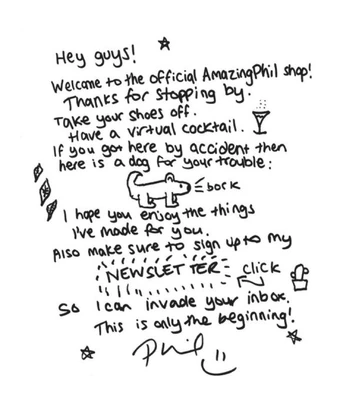 Hey guys!
Welcome to the official AmazingPhil shop!
Thanks for stopping by.
Take your shoes off.
Have a virtual cocktail.
If you got here by accident then
here is a dog for your trouble:
bork
I hope you enjoy the things
I've made for you.
Also make sure to sign up to my
NEWSLETTER click
So I can invade your inbox.
This is only the beginning!
Phil